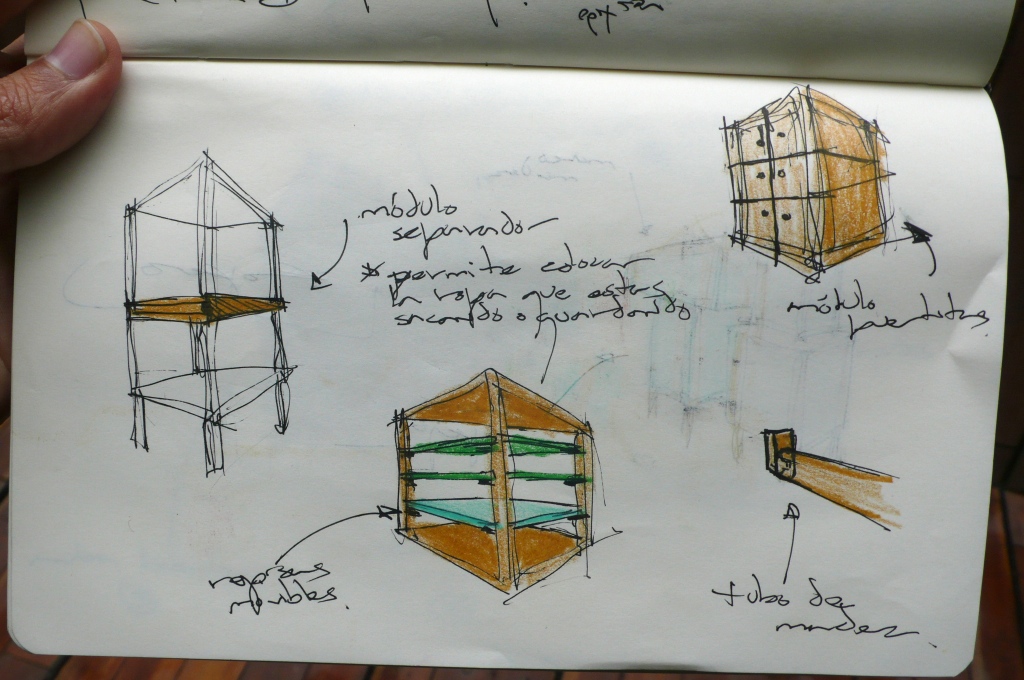 módulo
separador
* permite colocar
la ropa que estas
sacando o guardando
módulo
puertitas
repisas
movibles.
tubo de
madera.